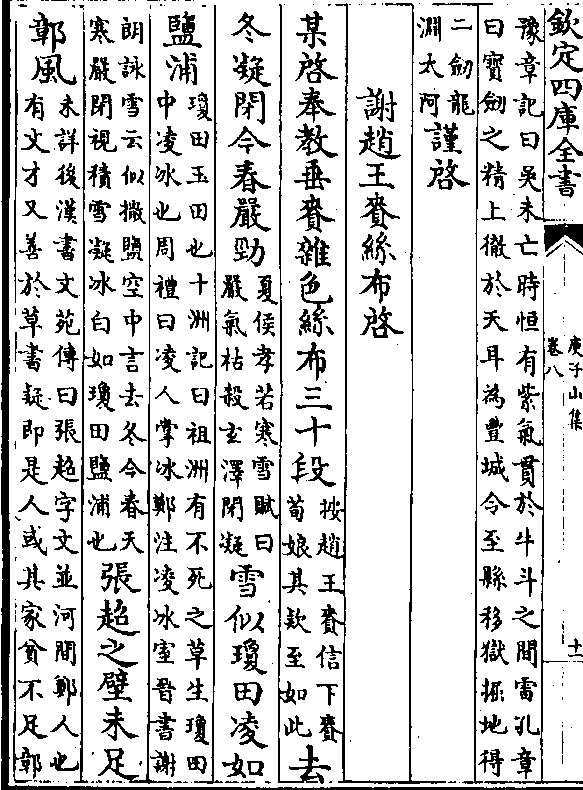 欽定四庫全書
庾子山集
卷八
十一
豫章記曰吳未亡時恒有紫氣貫於牛斗之間雷孔章
曰寳劒之精上徹於天耳為豐城令至縣移獄掘地得
二劒龍
淵太阿
謹啓
謝趙王賚絲布啓
某啓奉教垂賚雜色絲布三十段
按趙王賚信下賚
荀娘其欵至如此
去
冬凝閉今春嚴勁
夏侯孝若寒雪賦曰
嚴氣枯殺玄澤閉凝
雪似瓊田凌如
鹽浦
瓊田玉田也十洲記曰祖洲有不死之草生瓊田
中凌冰也周禮曰凌人掌冰鄭注凌冰室晉書謝
朗詠雪云似撒鹽空中言去冬今春天
寒嚴閉視積雪凝冰白如瓊田鹽浦也
張超之壁未足
鄣風
未詳後漢書文苑傳曰張超字文並河間鄚人也
有文才又善於草書疑即是人或其家貧不足鄣